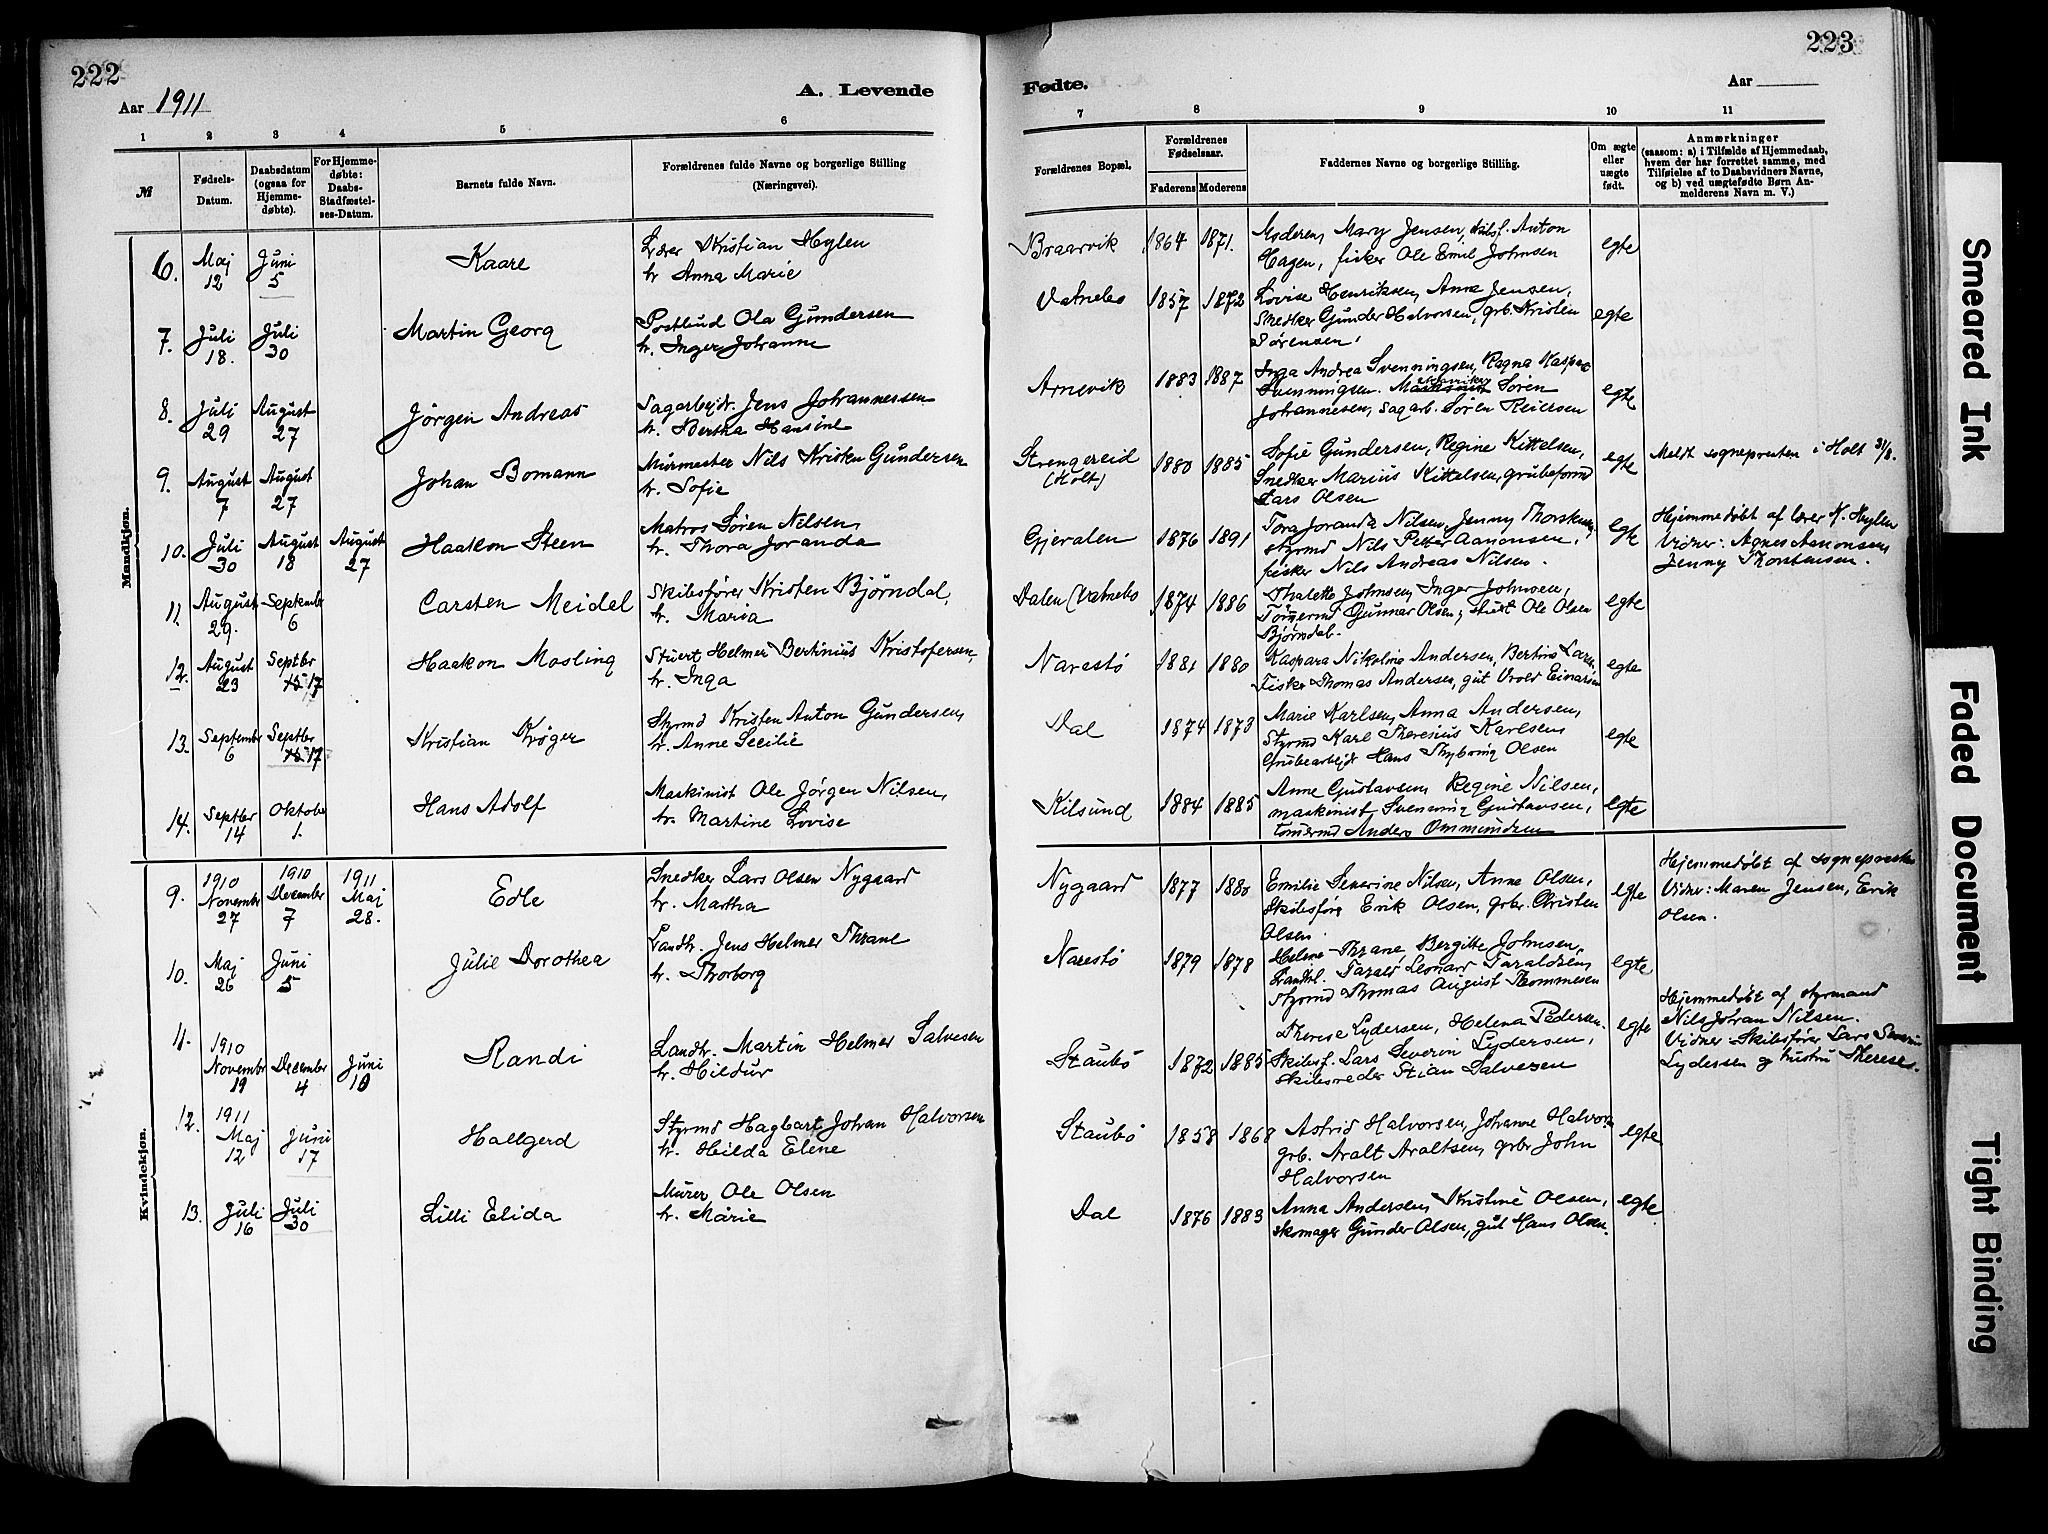 222
Aar 1911
A. Levende
1 2 3 4 5 6
№
Fødsels-Datum.
Daabsdatum (ogsaa for Hjemmedøbte).
For Hjemmedøbte: Daabs-Stadfæstelses-Datum.
Barnets fulde Navn.
Forældrenes fulde Navne og borgerlige Stilling (Næringsvei).
Mandkjøn.
6. Maj 12 Juni 5 Kaare Lærer Kristian Hylen
h. Anna Marie
7. Juli 18. Juli 30 Martin Georg Postbud Ola Gundersen
h. Inger Johanne
8. Juli 29 August 27 Jörgen Andreas Sagarbejdr. Jens Johannessen
h. Bertha Hansine
9. August 7 August 27 Johan Bomann Murmester Nils Kristen Gundersen
h. Sofie
10. Juli 30 August 18 August 27 Haakon Steen Matros Søren Nilsen,
h. Thora Joranda
11. August 29. September 6 Carsten Meidel Skibsfører Kristen Bjørndal,
h. Maria
12. August 23 Septbr 17 Haakon Mosling Stuert Helmer Bertinius Kristofersen,
h. Inga
13. September 6 Septbr 17 Kristian Krøger Styrmd Kristen Anton Gundersen,
h. Anne Secilie
14. Septbr 14 Oktober 1. Hans Adolf Maskinist Ole Jørgen Nilsen,
h. Martine Lovise
Kvindekjøn.
9. 1910 November 27 1910 December 7 1911 Maj 28. Edle Snedker Lars Olsen Nygaard
h. Martha
10. Maj 26 Juni 5 Julie Dorothea Landh. Jens Helmer Thrane
h. Thorborg
11. 1910 Novembr 19 December 4 Juni 10 Randi Landh. Martin Helmer Salvesen
h. Hildur
12. 1911 Maj 12 Juni 17 Hallgerd Styrmd Hagbart Johan Halvorsen
h. Hilda Elene
13. Juli 16 Juli 30 Lilli Elida Murer Ole Olsen
h. Marie
223
Fødte.
Aar
7 8 9 10 11
Forældrenes Bopæl.
Forældrenes Fødselsaar.
Faderens Moderens
Faddernes Navne og borgerlige Stilling.
Om ægte eller uægte født.
Anmærkninger
(saasom: a) i Tilfælde af Hjemmedaab, hvem der har forrettet samme, med Tilføielse af to Daabsvidners Navne, og b) ved uægtefødte Børn Anmelderens Navn m. V.)
Braarvik 1864 1871. Moderen, Mary Jensen, skibsf. Anton egte
Hagen, fisker Ole Emil Johnsen
Vatnebo 1857 1872 Lovise Henriksen, Anna Jensen, egte
Snedker Gunder Halvorsen, grb. Kristen
Sørensen.
Arnevik 1883 1887 Inga Andrea Svenningsen, Ragna Kaspara egte
Svenningsen. Søren
Johannesen, sagarb. Søren Reiersen
Strengereid (Holt) 1880 1885 Sofie Gundersen, Regine Kittelsen, egte Meldt sognepresten i Holt 31/8.
Snedker Marius Kittelsen, grubeformd
Lars Olsen
Gjervalen 1876 1891 Tora Joranda Nilsen, Jenny Thorstensen, egte Hjemmedøbt af lærer K. Hylen
styrmd Nils Petter Aanonsen, Vidner: Agnes Aanonsen,
fisker Nils Andreas Nilsen. Jenny Thorstensen.
Dalen (Vatnebo 1874 1886 Thalette Johnsen, Inger Johnsen, egte
Tømermd Gunnar Olsen, stuert Ole Olsen
Bjørndal.
Narestø 1881 1880 Kaspara Nikoline Andersen, Bertine Larsen egte
Fisker Thomas Andersen, gut Vrold Einarsen
Dal 1874 1873 Marie Karlsen, Anna Andersen, egte
Styrmd Karl Theresius Karlsen,
Grubearbejdr Hans Thyboring Olsen
Kilsund 1884 1885 Anne Gustavsen, Regine Nilsen, egte
maskinist Svenning Gustavsen,
tømermd Anders Ommundsen
Nygaard 1877 1880 Emilie Severine Nilsen, Anne Olsen, egte Hjemmedøbt af sognepresten
Skibsfører Erik Olsen, grbr. Christen Vidner: Maren Jensen, Erik
Olsen Olsen.
Narestø 1879 1878 Helene Thrane, Bergitte Johnsen, egte
Landhl. Tarald Leonard Taraldsen,
Styrmd Thomas August Thommesen
Staubø 1872 1885 Therese Lydersen, Helena Pedersen. egte Hjemmedøbt af styrmand
Skibsf. Lars Severin Lydersen, Nils Johan Nilsen.
skibsreder Stian Salvesen Vidner Skibsfører Lars Severin
Lydersen og hustru Therese.
Staubø 1858 1868 Astrid Halvorsen, Johanne Halvorsen egte
grb. Aralt Araltsen, grbr John
Halvorsen
Dal 1876 1883 Anna Andersen, Kristine Olsen, egte
skomager Gunder Olsen, gut Hans Olsen.
Smeared Ink
Faded Document
Tight Binding